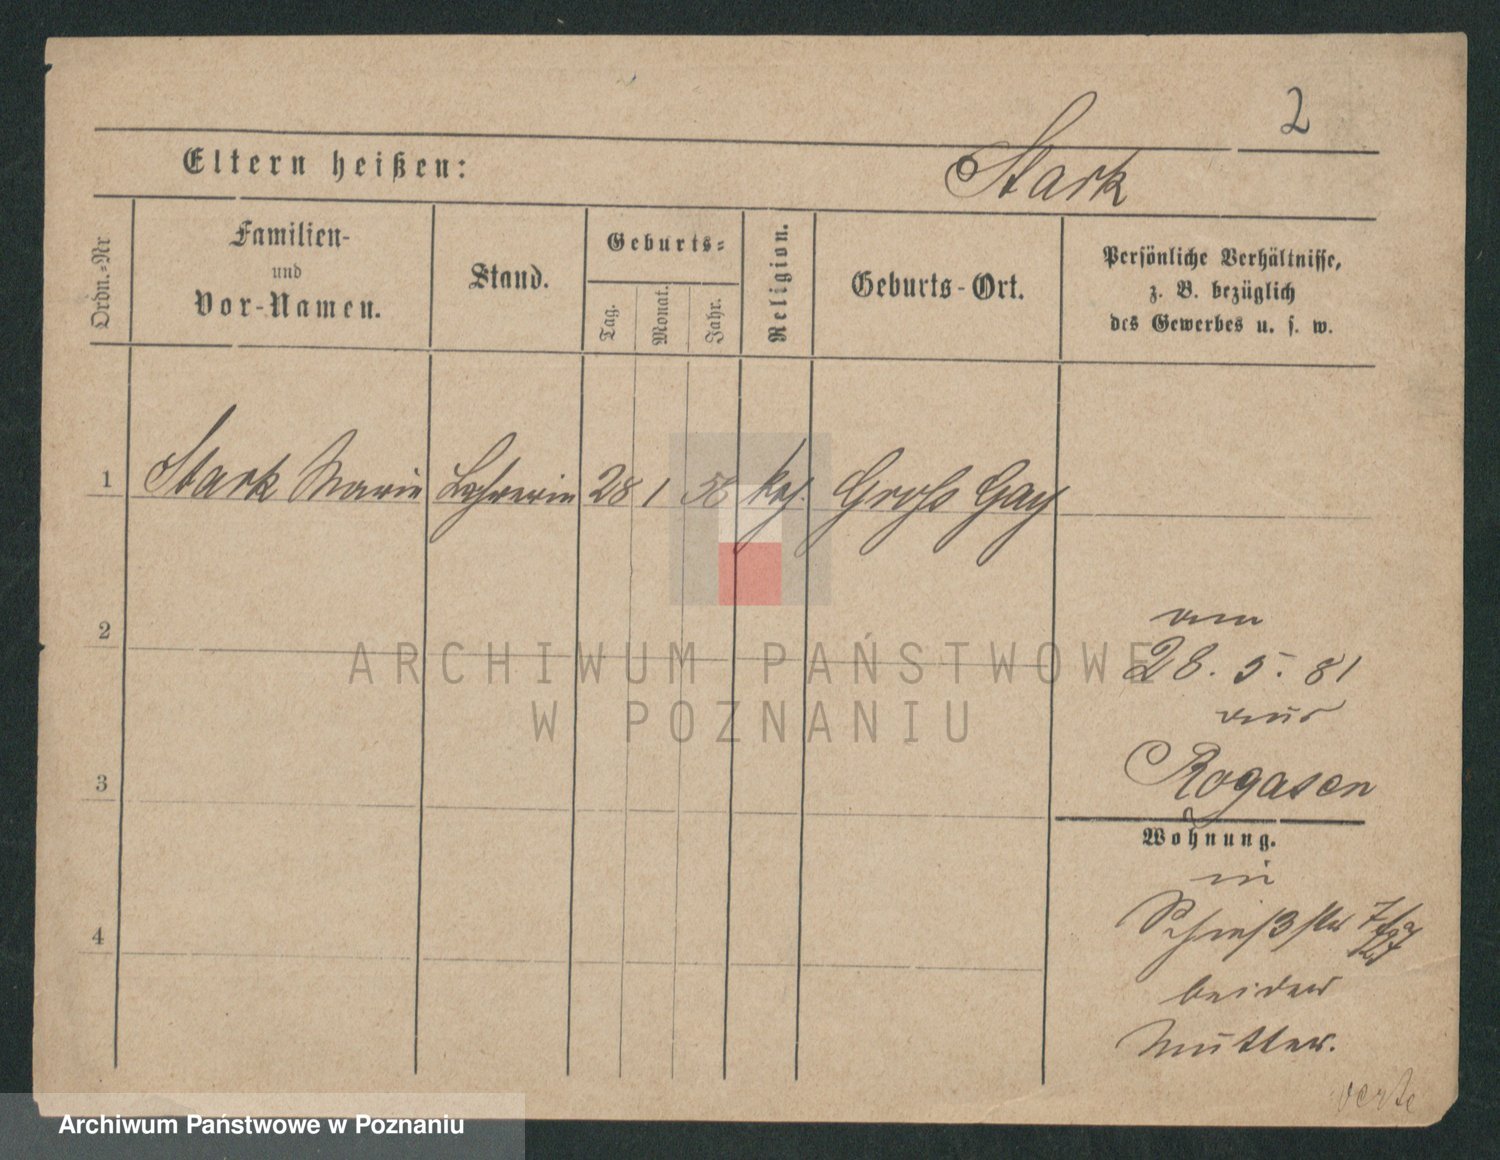 2
Eltern heißen:
Stark
Ordn.-Nr
Familien-
und
Vor-Namen.
Stand.
Geburts-
Tag.
Monat.
Jahr.
Religion.
Geburts-Ort.
Persönliche Verhältnisse,
z. B. bezüglich
des Gewerbes u. s. w.
1 Stark Marie Lehrerin 28 1 58 Groß Gay
2
3
4
28. 5. 81
aus
Rogasen
Wohnung.
in
Schießstr
bei der
Mutter.
verte
ARCHIWUM PAŃSTWOWE
W POZNANIU
Archiwum Państwowe w Poznaniu